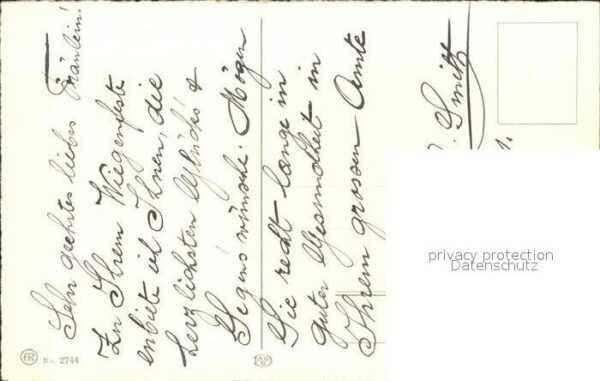 Sehr geehrtes liebes Fräulein!
Zu Ihrem Wiegenfeste
enbiete ich Ihnen, die
herzlichsten Glücks &
Segenswünsche. Mögen
Sie recht lange in
guter Gesundheit in
Ihrem grossen Amte
Smitz
privacy protection
Datenschutz
No. 2744